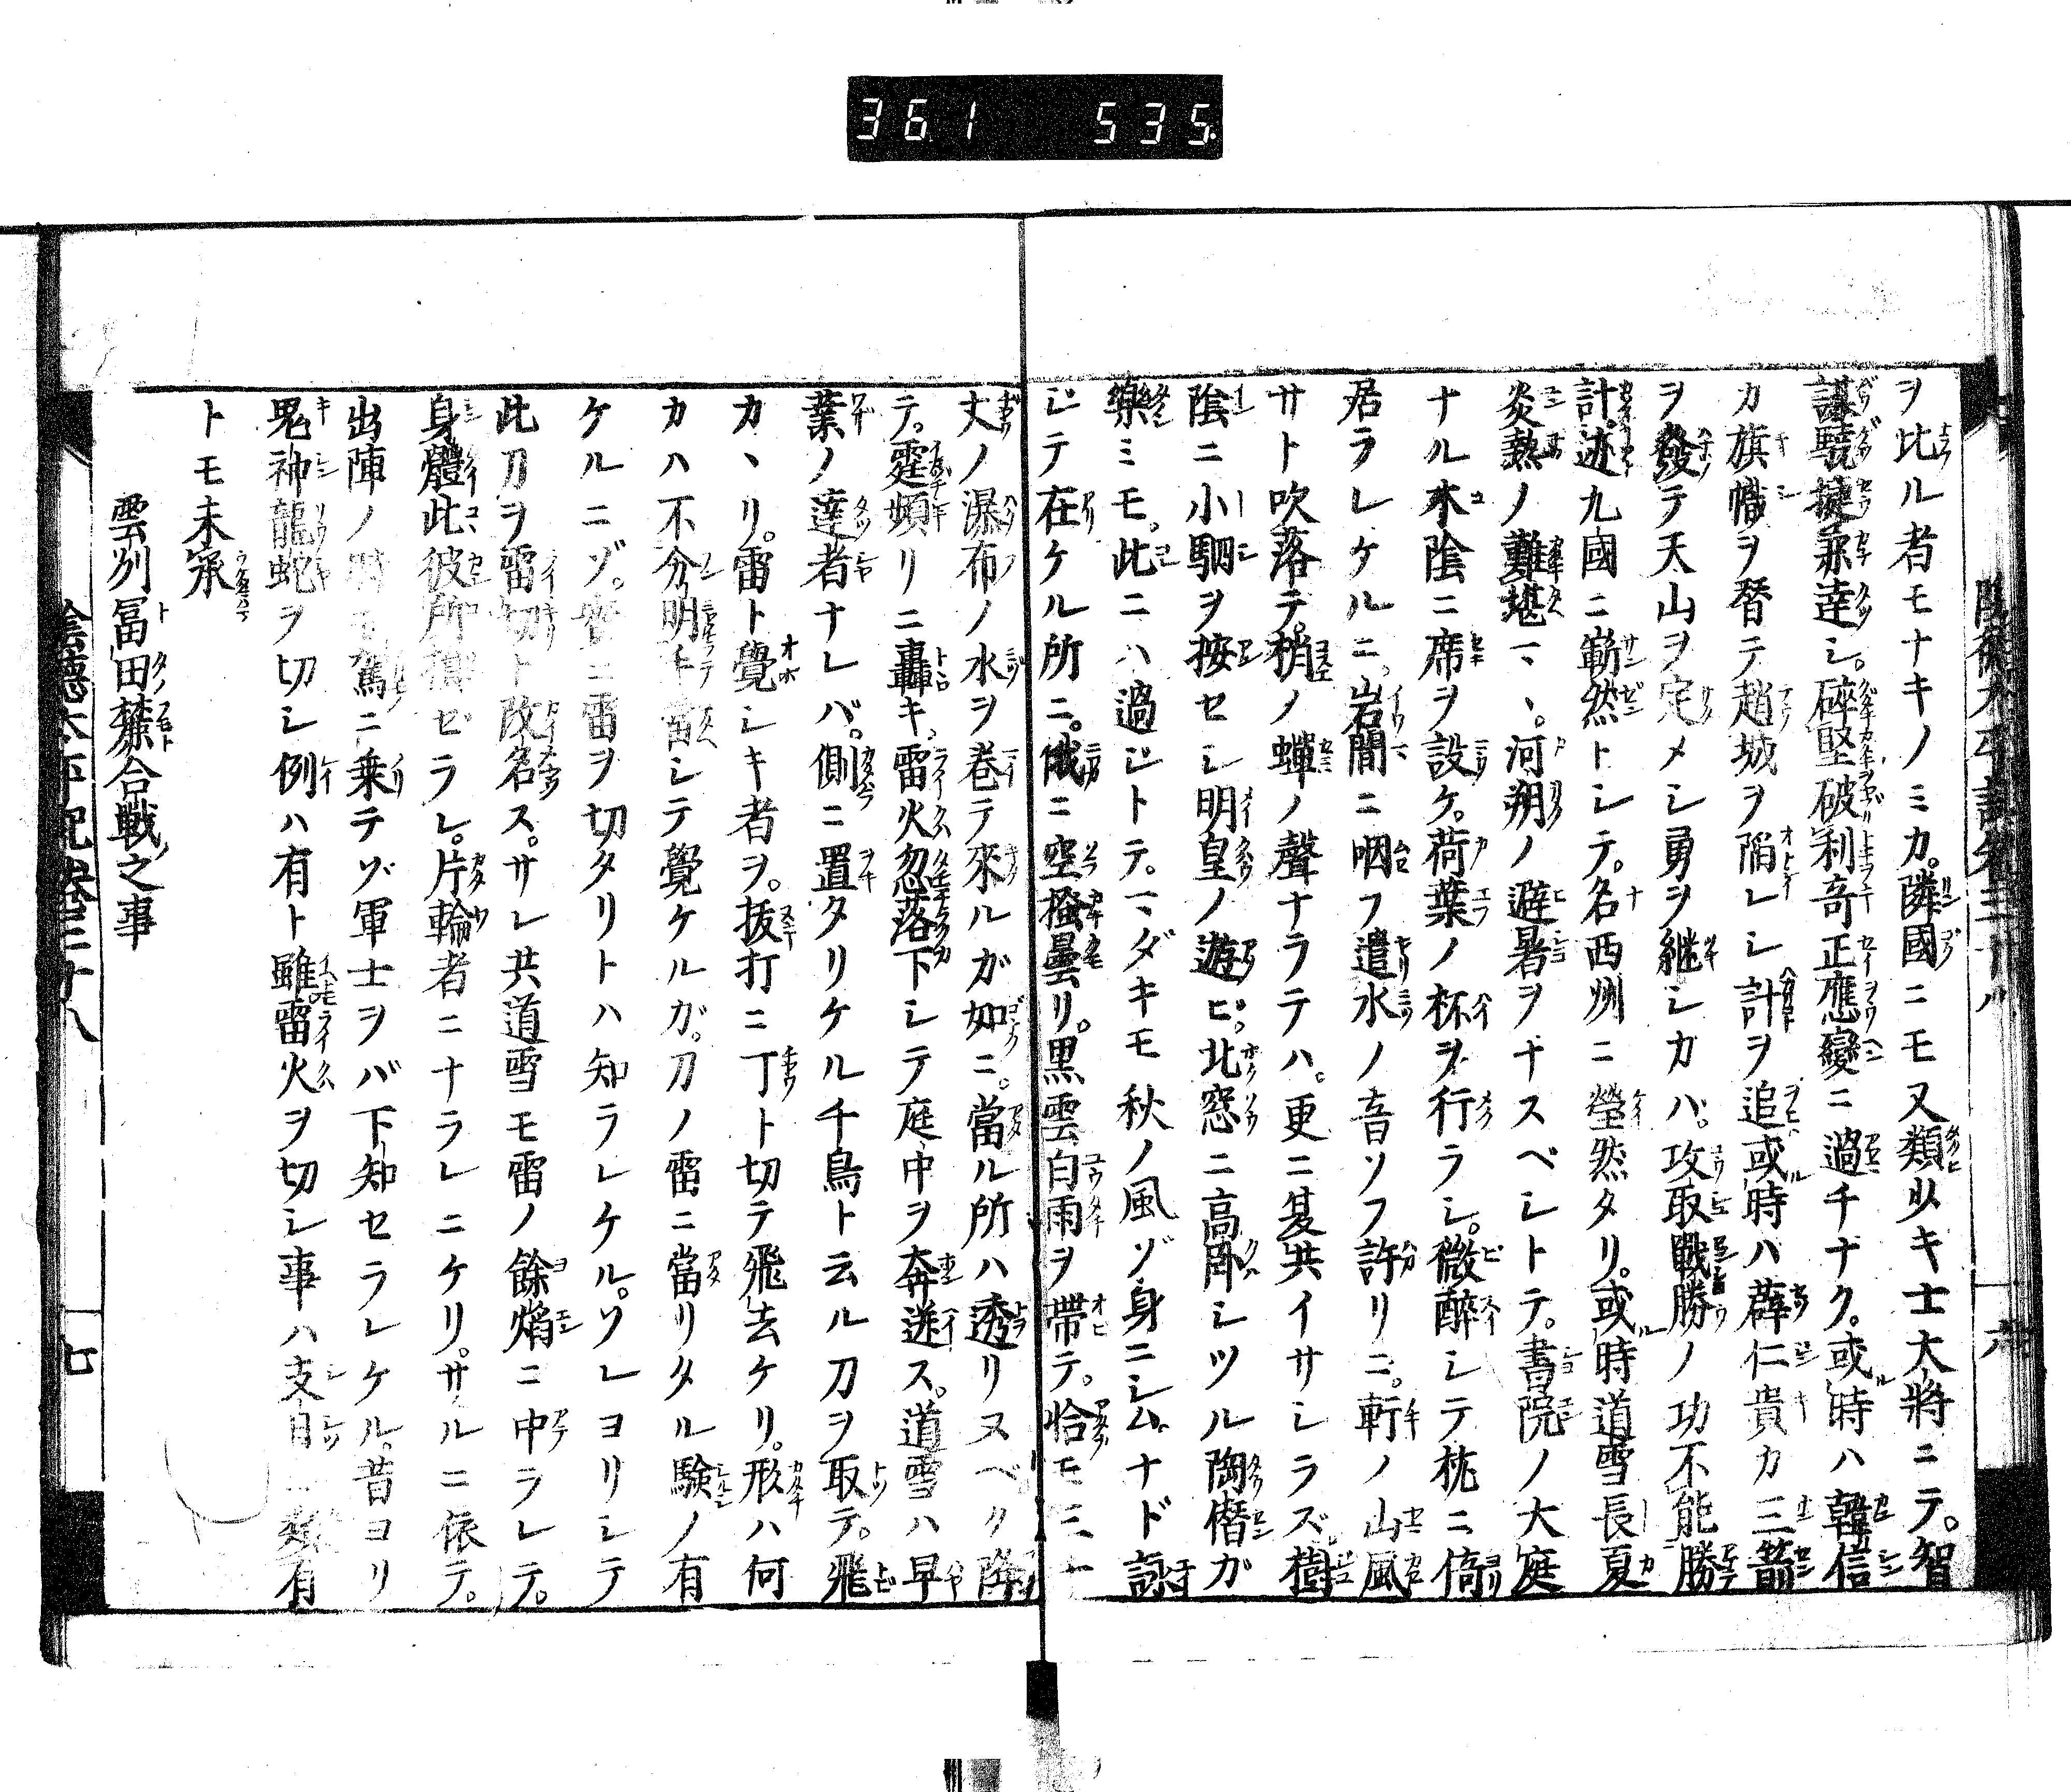 361 535
陰德太平記卷三十八 六
ヲ比ル者モナキノミカ。隣國ニモ又類少キ士大將ニテ。智
謀驍捷兼達シ。碎堅破利奇正應變ニ過チナク。或時ハ韓信
カ旗幟ヲ替テ趙城ヲ陷レシ計ヲ追或時ハ薛仁貴カ三箭
ヲ發テ天山ヲ定メシ勇ヲ継シカバ。攻取戰勝ノ功不能勝
計。迹九國ニ嶄然トシテ。名西州ニ瑩然タリ。或時道雪長夏
炎熱ノ難堪マヽ。河朔ノ避暑ヲナスベシトテ。書院ノ大庭
ナル木陰ニ席ヲ設ケ。荷葉ノ杯ヲ行ラシ。微醉シテ枕ニ倚
居ラレケルニ。岩間ニ咽フ遣水ノ音ソフ許リニ。軒ノ山風
サト吹落テ。梢ノ蟬ノ聲ナラテハ。更ニ夏共イサシラズ樹
陰ニ小駟ヲ按セシ明皇ノ遊ビ。北窓ニ高臥シツル陶僭ガ
樂ミモ。此ニハ過ジトテ。マダキモ秋ノ風ゾ身ニシムナド詞
ジテ在ケル所ニ。俄ニ空搔曇リ。黒雲白雨ヲ帶テ。恰モ三十
丈ノ瀑布ノ水ヲ卷テ來ルガ如ニ。當ル所ハ透リヌベク降
テ。霆頻リニ轟キ。雷火忽落下シテ庭中ヲ奔迸ス。道雪ハ早
業ノ達者ナレバ。側ニ置タリケル千鳥ト云ル刀ヲ取テ。飛
カヽリ。雷ト覺シキ者ヲ。拔打ニ丁ト切テ飛去ケリ。形ハ何
カハ不分明千雷シテ覺ケルガ。刀ノ雷ニ當リタル験ノ有
ケルニゾ。實ニ雷ヲ切タリトハ知ラレケル。ソレヨリシテ
此刀ヲ雷切ト改名ス。サレ共道雪モ雷ノ餘焔ニ中ラレテ。
身體此彼所損ゼラレ。片輪者ニナラレニケリ。サルニ依テ。
出陣ノ時モ駕ニ乗テゾ軍士ヲバ下知セラレケル。昔ヨリ
鬼神龍蛇ヲ切シ例ハ有ト雖雷火ヲ切シ事ハ支 有
トモ未承
雲州冨田麓合戰之事
陰德太平記卷三十八 七